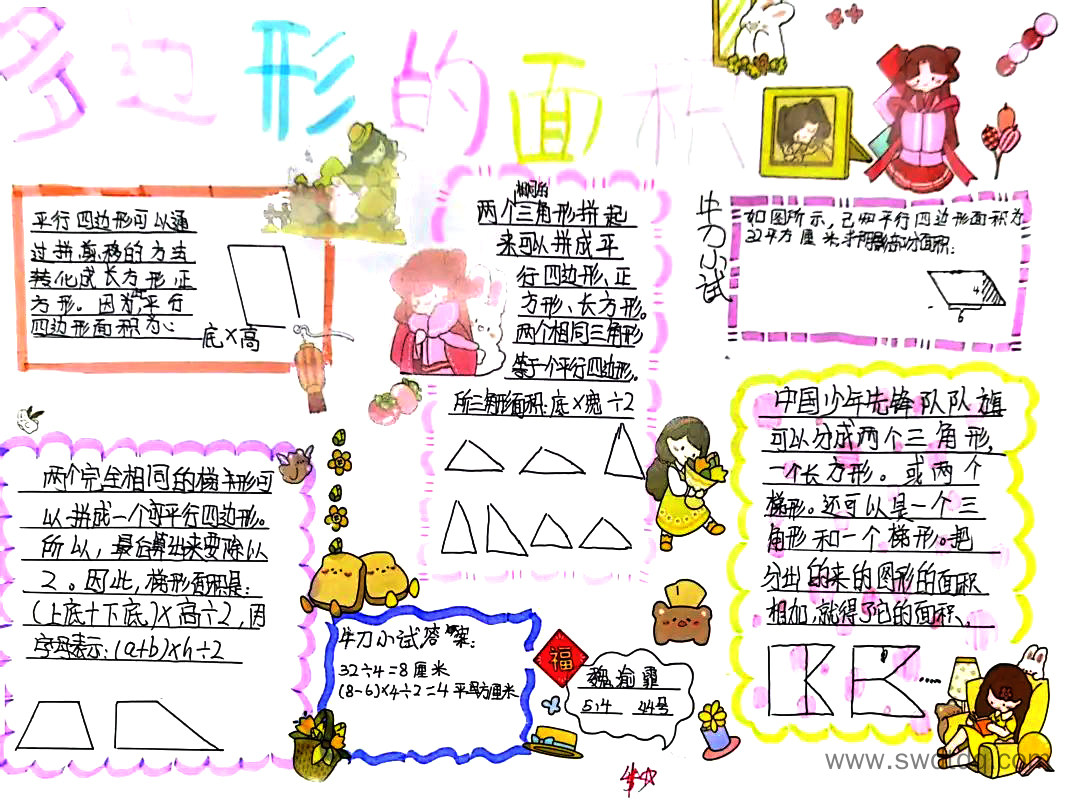 多边形的面积
平行四边形可以通
过拼剪移的方法
转化成长方形正
方形。因为平行
四边形面积为
底×高
相同的
两个三角形拼起
来可以拼成平
行四边形、正
方形、长方形。
两个相同三角形
等于一个平行四边形。
所三角形面积:底× ÷2
牛刀小试
如图所示,己知平行四边形面积为
32平方厘米求阴影部分面积:
4
6
中国少年先锋队队旗
可以分成两个三角形,
一个长方形。或两个
梯形。还可以是一个三
角形和一个梯形。把
分出的来的图形的面积
相加,就得了它的面积。
两个完全相同的梯形可
以拼成一个平行四边形。
所以,最后算出来要除以
2。因此,梯形面积是:
(上底+下底)×高÷2,用
字母表示:(a+b)×h÷2
牛刀小试答案:
32÷4=8厘米
(8-6)×4÷2=4平方厘米
福
魏 霏
5.4 44号
www.swdtdq.com